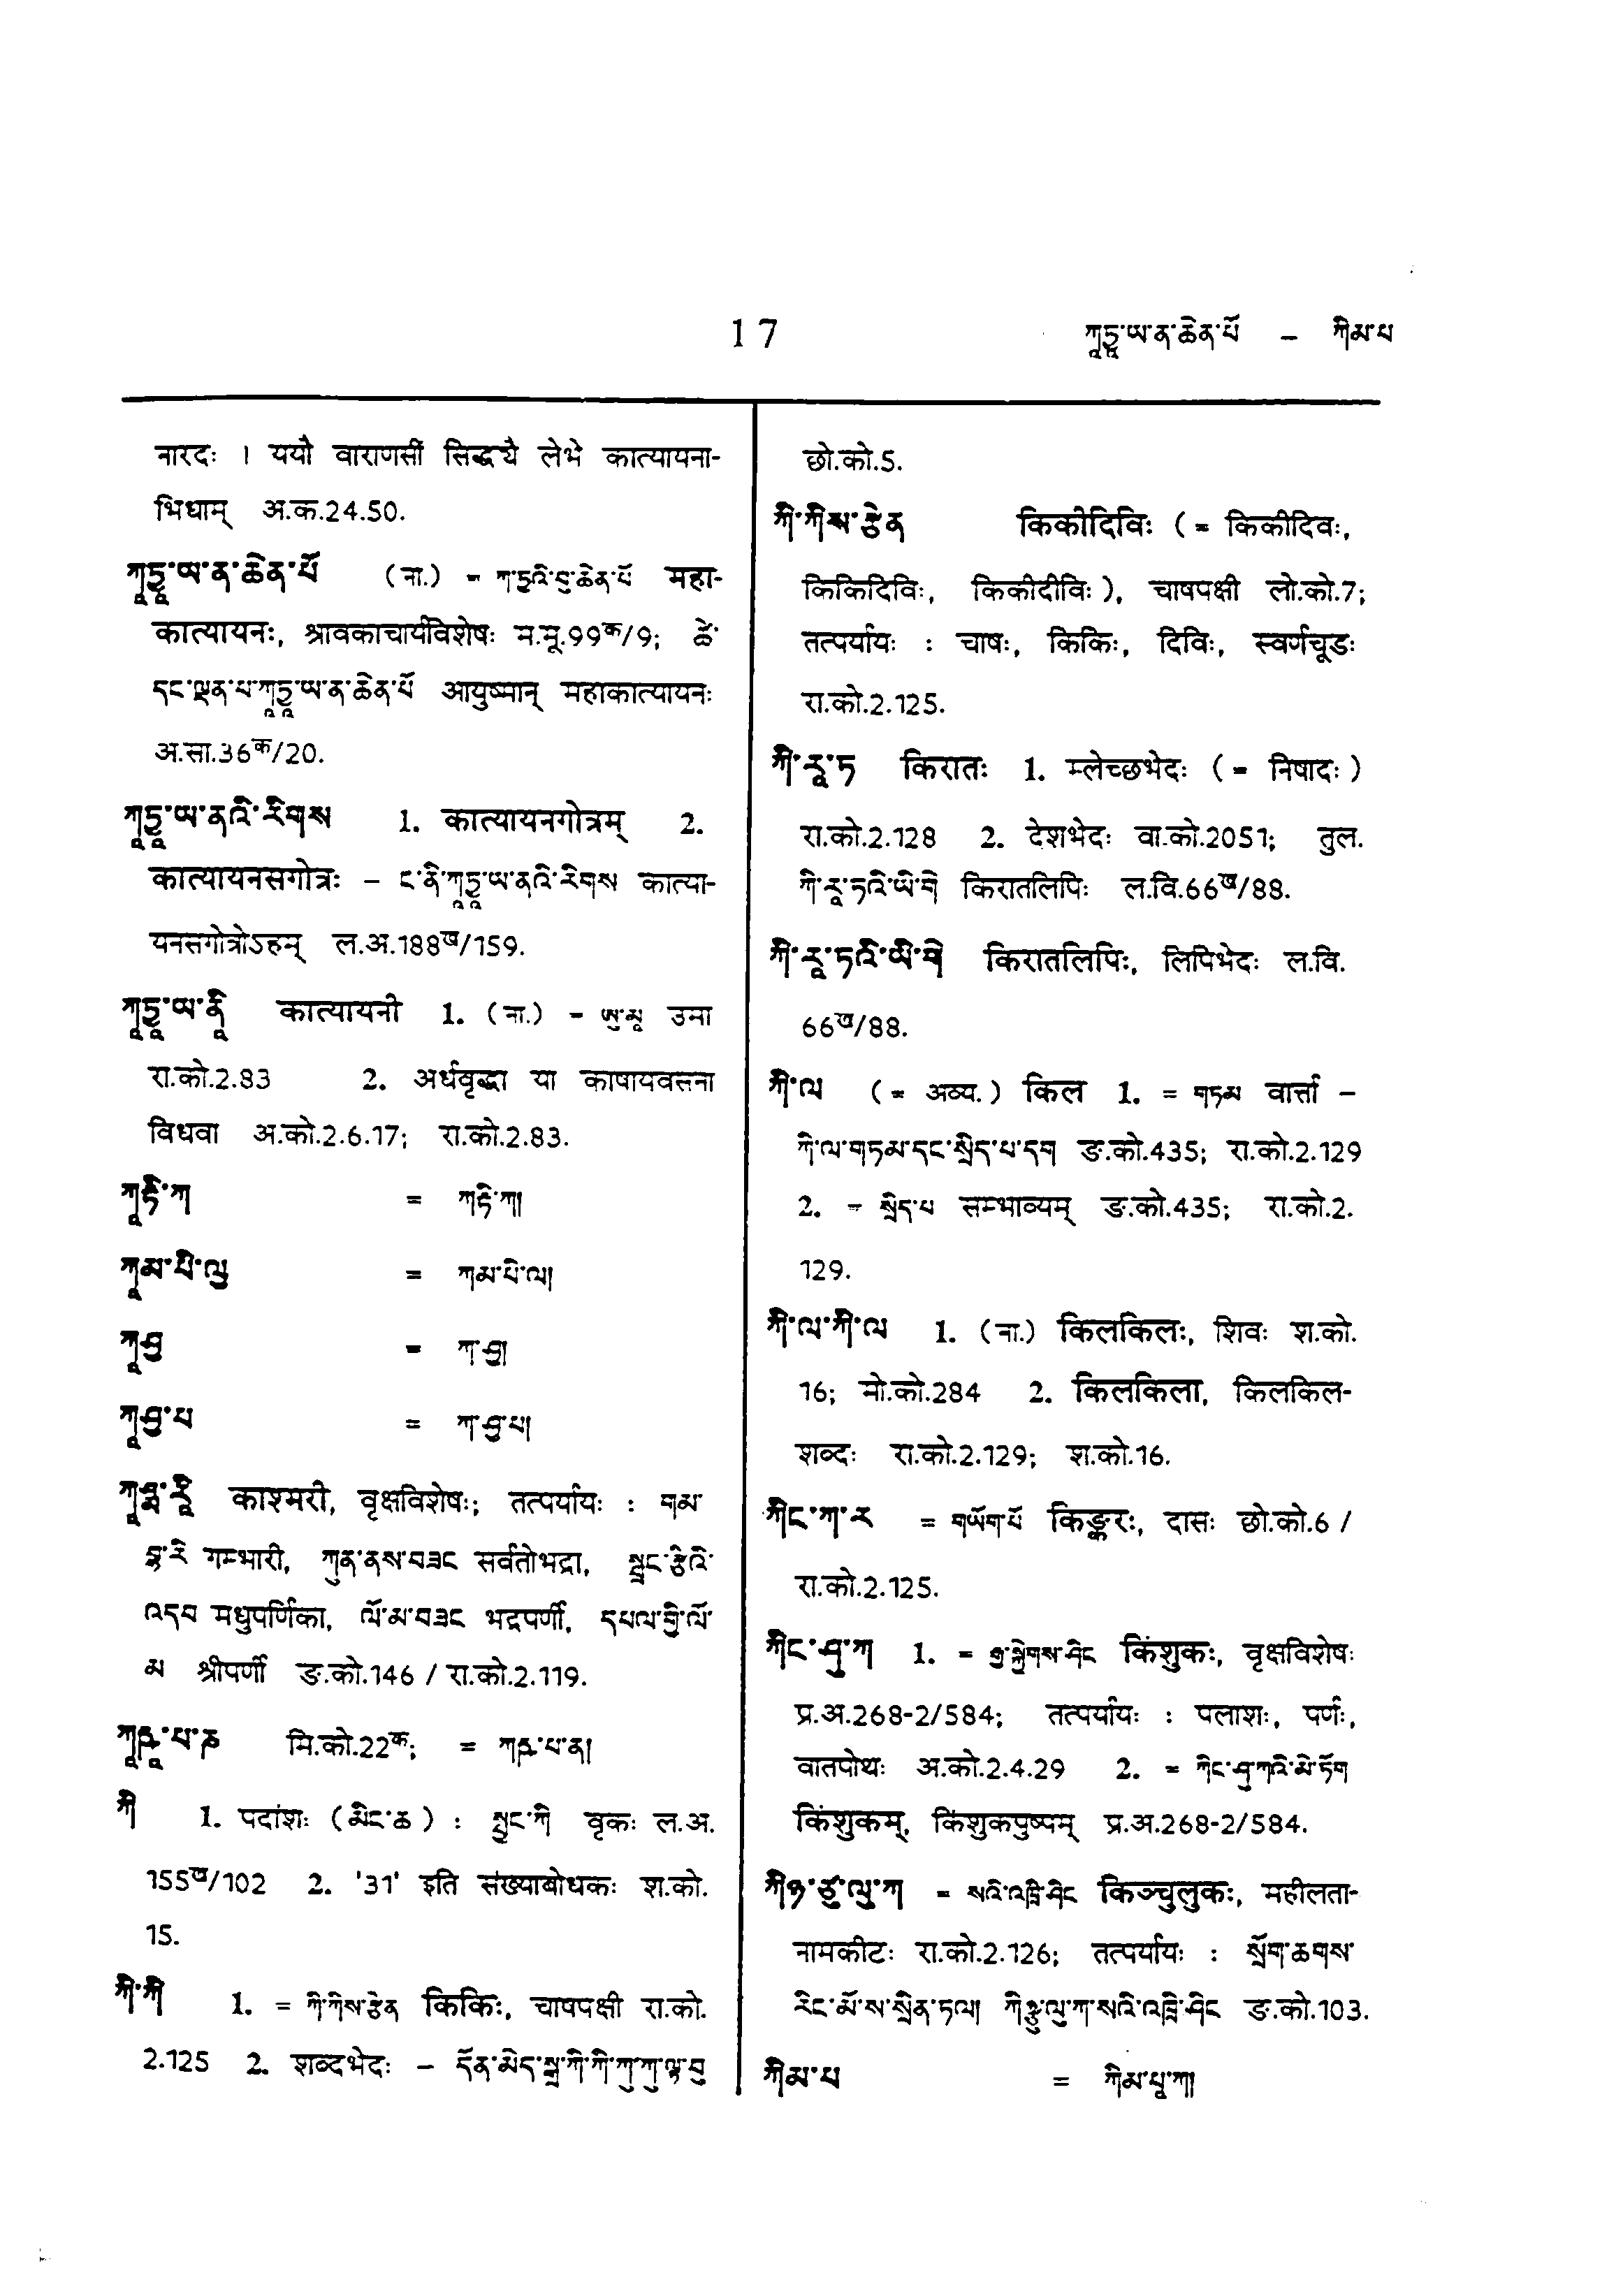 17 ཀཱཏྱཱ་ཡ་ན་ཆེན་པོ – ཀིམ་པ
नारदः । ययौ वाराणसीं सिद्धयै लेभे कात्यायना-
भिधाम् अ.क.24.50.
ཀཱཏྱཱ་ཡ་ན་ཆེན་པོ (ना.) = ཀ་ཏྱའི་བུ་ཆེན་པོ महा-
कात्यायनः, श्रावकाचार्यविशेषः म.मू.99क/9; ཚེ་
དང་ལྡན་པ་ཀཱཏྱཱ་ཡ་ན་ཆེན་པོ आयुष्मान् महाकात्यायनः
अ.सा.36क/20.
ཀཱཏྱཱ་ཡ་ནའི་རིགས 1. कात्यायनगोत्रम् 2.
कात्यायनसगोत्रः – ང་ནི་ཀཱཏྱཱ་ཡ་ནའི་རིགས कात्या-
यनसगोत्रोऽहम् ल.अ.188ख/159.
ཀཱཏྱཱ་ཡ་ནཱི कात्यायनी 1. (ना.) = ཨུ་མཱ उमा
रा.को.2.83 2. अर्धवृद्धा या काषायवसना
विधवा अ.को.2.6.17; रा.को.2.83.
ཀཱརྟི་ཀ = ཀརྟི་ཀ།
ཀཱམ་པི་ལུ = ཀམ་པི་ལ།
ཀཱཤྱ = ཀ་ཤྱ།
ཀཱཤྱ་པ = ཀ་ཤྱ་པ།
ཀཱཤྨ་རཱི काश्मरी, वृक्षविशेषः; तत्पर्यायः : གམ་
བྷཱ་རི गम्भारी, ཀུན་ནས་བཟང सर्वतोभद्रा, སྦྲང་རྩིའི་
འདབ मधुपर्णिका, ལོ་མ་བཟང भद्रपर्णी, དཔལ་གྱི་ལོ་
མ श्रीपर्णी ङ.को.146 / रा.को.2.119.
ཀཱརྵཱ་པ་ཎ मि.को.22क; = ཀརྵ་པ་ན།
ཀི 1. पदांशः (མིང་ཆ) : སྤྱང་ཀི वृकः ल.अ.
155ख/102 2. '31' इति संख्याबोधकः श.को.
15.
ཀི་ཀི 1. = ཀི་ཀིས་རྩེན किकिः, चाषपक्षी रा.को.
2.125 2. शब्दभेदः – དོན་མེད་སྒྲ་ཀི་ཀི་ཀུ་ཀུ་ལྟ་བུ
छो.को.5.
ཀི་ཀིས་རྩེན किकीदिविः (= किकीदिवः,
किकिदिविः, किकीदीविः), चाषपक्षी लो.को.7;
तत्पर्यायः : चाषः, किकिः, दिविः, स्वर्णचूडः
रा.को.2.125.
ཀི་རཱ་ཏ किरातः 1. म्लेच्छभेदः (= निषादः)
रा.को.2.128 2. देशभेदः वा.को.2051; तुल.
ཀི་རཱ་ཏའི་ཡི་གེ किरातलिपिः ल.वि.66ख/88.
ཀི་རཱ་ཏའི་ཡི་གེ किरातलिपिः, लिपिभेदः ल.वि.
66ख/88.
ཀི་ལ (= अव्य.) किल 1. = གཏམ वार्त्ता –
ཀི་ལ་གཏམ་དང་སྲིད་པ་དག ङ.को.435; रा.को.2.129
2. = སྲིད་པ सम्भाव्यम् ङ.को.435; रा.को.2.
129.
ཀི་ལ་ཀི་ལ 1. (ना.) किलकिलः, शिवः श.को.
16; मो.को.284 2. किलकिला, किलकिल-
शब्दः रा.को.2.129; श.को.16.
ཀིང་ཀ་ར = གཡོག་པོ किङ्करः, दासः छो.को.6 /
रा.को.2.125.
ཀིང་ཤུ་ཀ 1. = རྒྱ་སྐྱེགས་ཤིང किंशुकः, वृक्षविशेषः
प्र.अ.268-2/584; तत्पर्यायः : पलाशः, पर्णः,
वातपोथः अ.को.2.4.29 2. = ཀིང་ཤུ་ཀའི་མེ་ཏོག
किंशुकम्, किंशुकपुष्पम् प्र.अ.268-2/584.
ཀིཉ་ཙུ་ལུ་ཀ = སའི་འཁྲི་ཤིང किञ्चुलुकः, महीलता-
नामकीटः रा.को.2.126; तत्पर्यायः : སྲོག་ཆགས་
རིང་མོ་ས་སྲིན་ཏལ། ཀིཉྩུ་ལུ་ཀ་སའི་འཁྲི་ཤིང ङ.को.103.
ཀིམ་པ = ཀིམ་པཱ་ཀ།